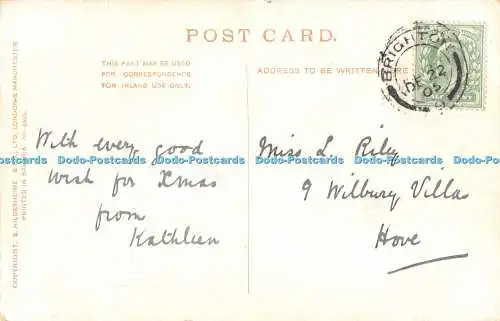 POST CARD.
THIS PART MAY BE USED
FOR CORRESPONDENCE
FOR INLAND USE ONLY.
ADDRESS TO BE WRITTEN HERE
BRIGHTON
DE 22
05
With every good
wish for Xmas
from
Kathleen
Miss L. Riley
9 Wilbury Villas
Hove
Dodo-Postcards Dodo-Postcards Dodo-Postcards Dodo-Postcards Dodo-Postcards Dodo-Postcards
COPYRIGHT, S. HILDESHEIMER & CO., LTD. LONDON & MANCHESTER
PRINTED IN